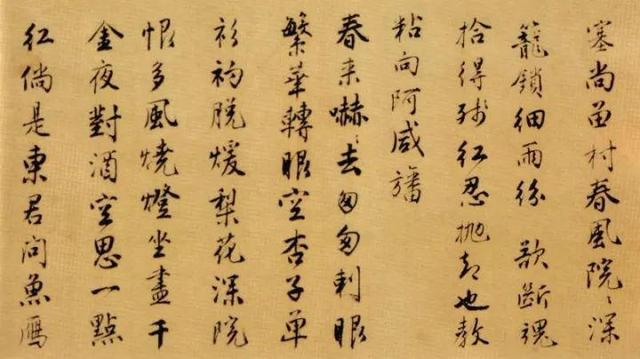 塞尚留村春風院〻深
籠鎖細雨紛欲斷魂
拾得殘紅忍拋却也教
粘向阿咸旛
春来嚇〻去匆匆刺眼
繁華轉眼空杏子單
衫初脫煖梨花深院
恨多風燒燈坐盡千
金夜對酒空思一點
紅倘是東君問魚鴈